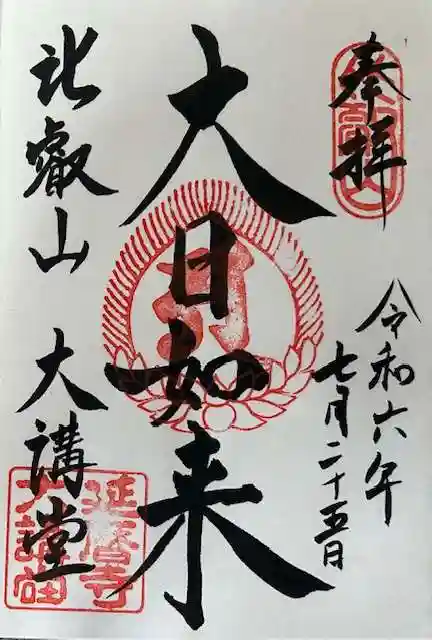 奉拝
令和六年
七月二十五日
大日如来
比叡山 大講堂
比叡山
延暦寺
大講堂